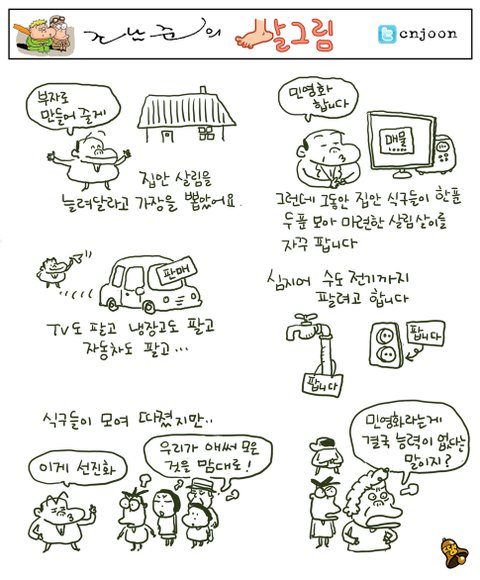 그난준의 발그림
cnjoon
부자로
만들어 줄게
집안 살림을
늘려달라고 가장을 뽑았어요.
민영화
합니다
매물
그런데 그동안 집안 식구들이 한푼
두푼 모아 마련한 살림살이를
자꾸 팝니다
판매
TV도 팔고 냉장고도 팔고
자동차도 팔고...
심지어 수도 전기까지
팔려고 합니다
팝니다
팝니다
식구들이 모여 따졌지만..
이게 선진화
우리가 애써 모은
것을 맘대로!
민영화라는게
결국 능력이 없다는
말이지?